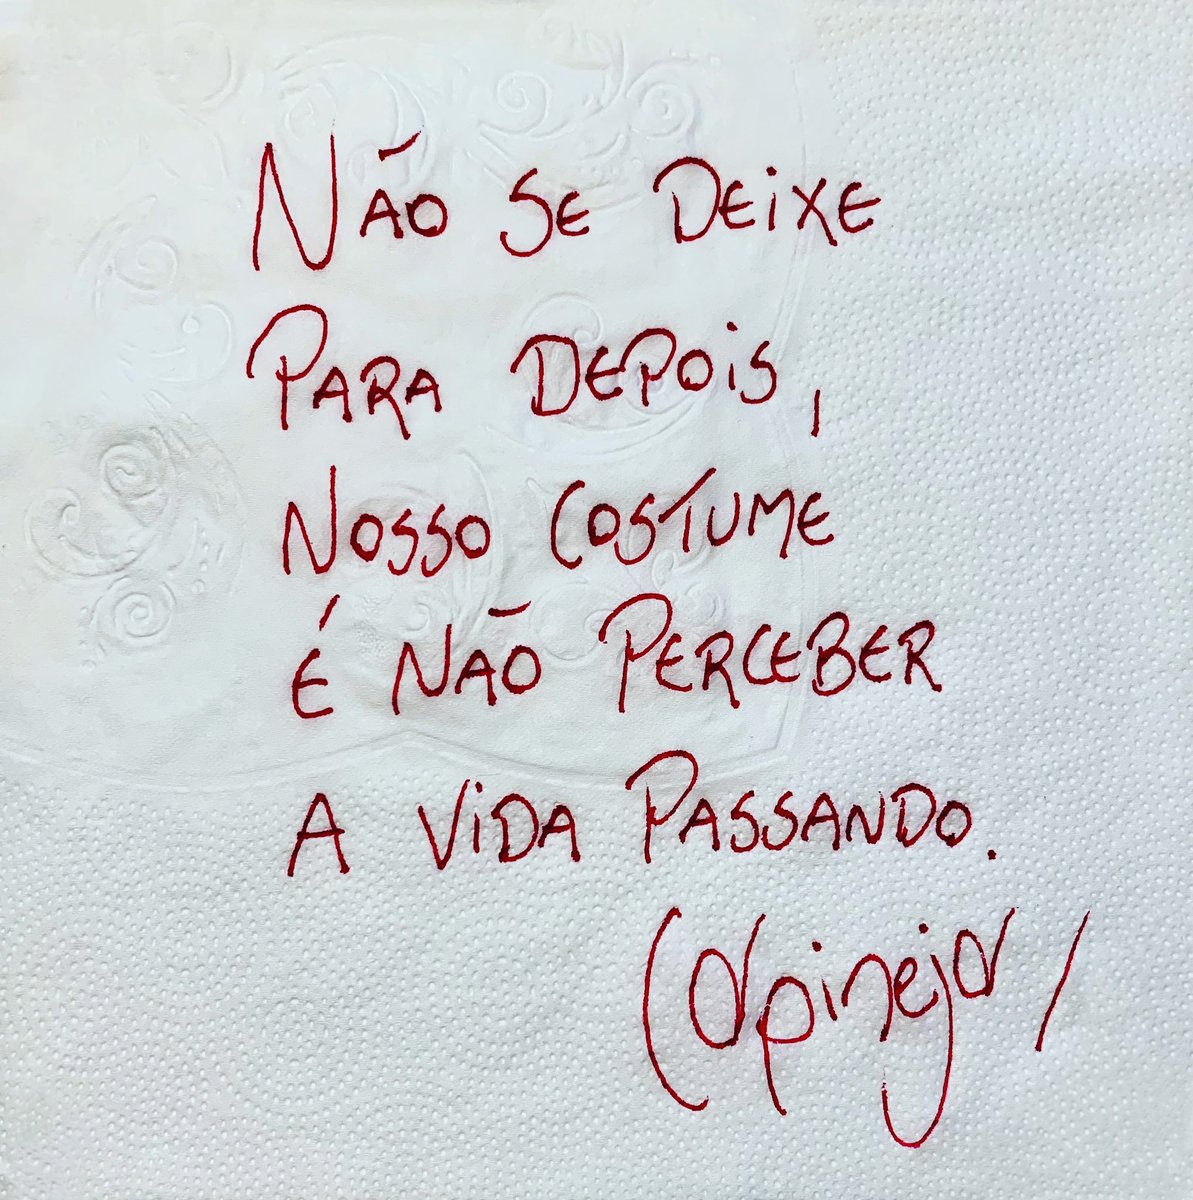 NÃO SE DEIXE
PARA DEPOIS,
NOSSO COSTUME
É NÃO PERCEBER
A VIDA PASSANDO.
Carpinejar